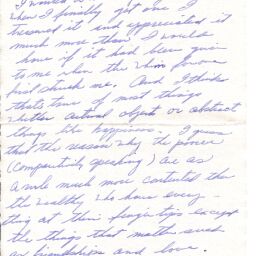 I wanted a
when I finally got one I
treasured it and appreciated it
much more than I would
have if it had been given
to me when the whim for one
first struck me. And I think
that's true of most things
whether actual objects or abstract
things like happiness. I guess
that the reason why the poorer
(comparitively speaking) are as
a rule much more contented than
the wealthy who have every-
thing at their finger tips except
the things that matter such
as friendships and love.